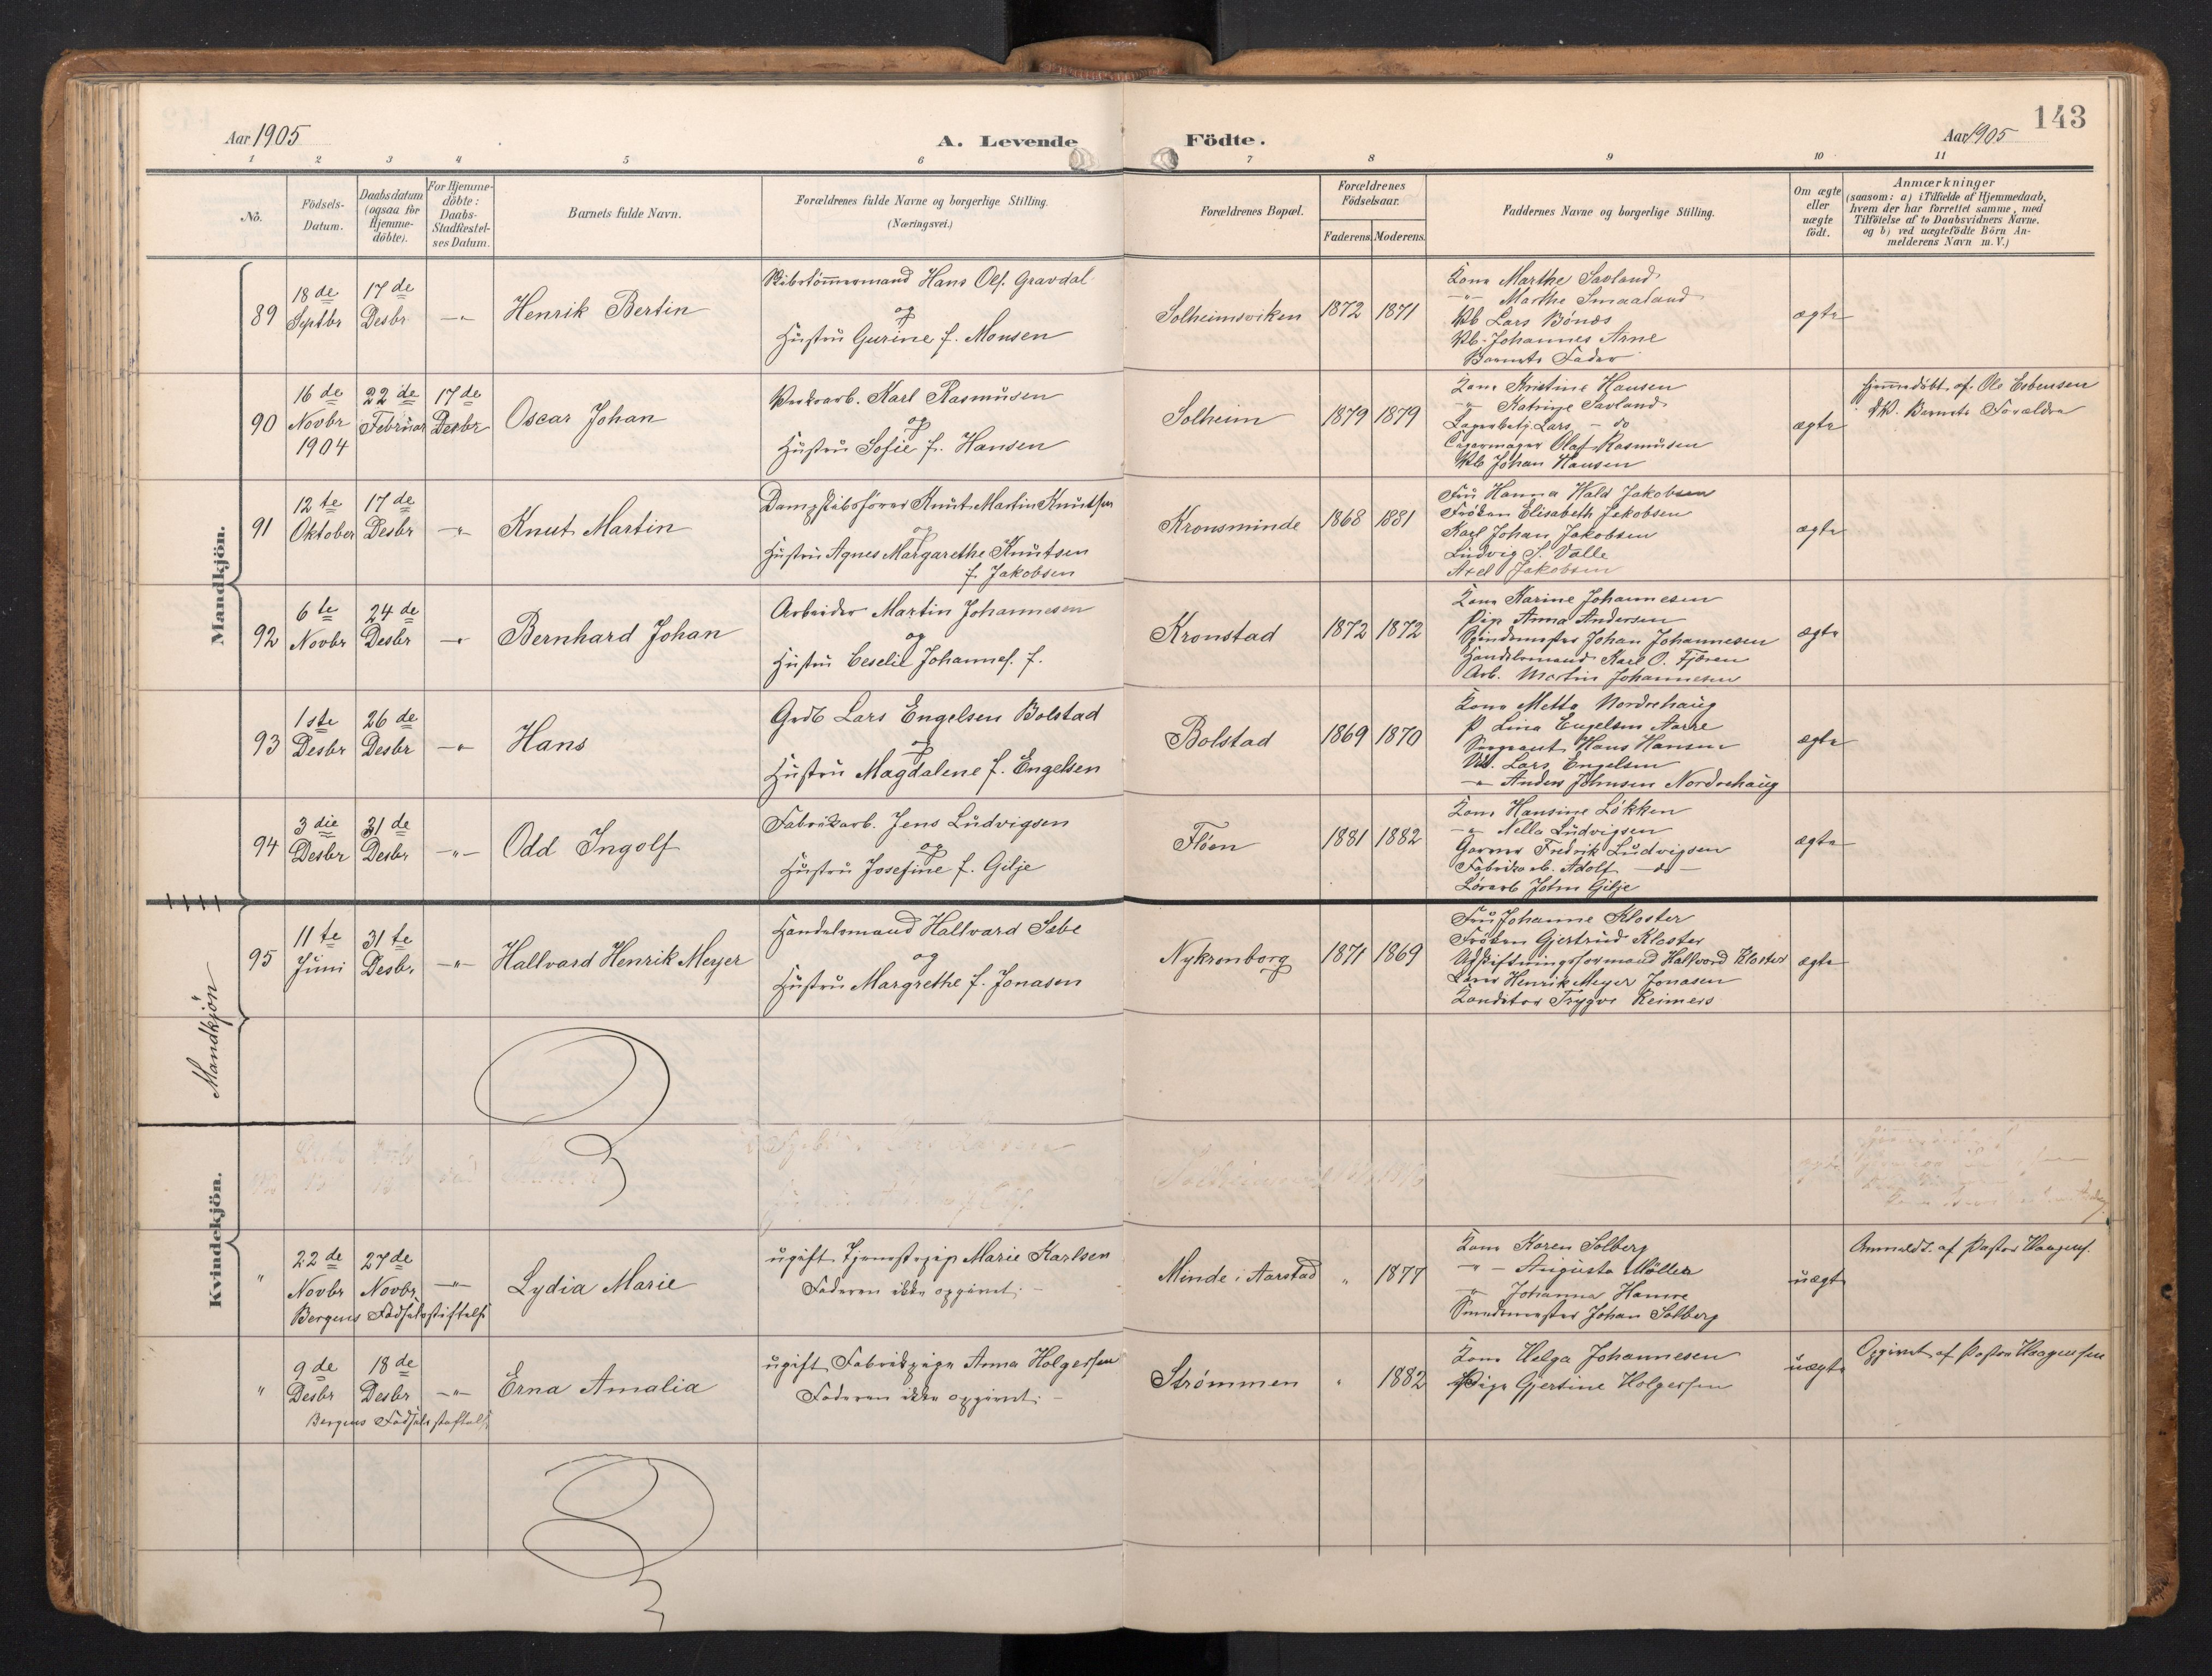 143
Aar 1905
A. Levende
Födte.
Aar 1905
1 2 3 4 5 6 7 8 9 10 11
No.
Födsels-
Datum.
Daabsdatum
(ogsaa for
Hjemme-
döbte).
For Hjemme-
döbte:
Daabs-
Stadfæstel-
ses Datum.
Barnets fulde Navn.
Forældrenes fulde Navne og borgerlige Stilling.
(Næringsvei.)
Forældrenes Bopæl.
Forældrenes
Födselsaar.
Faderens. Moderens.
Faddernes Navne og borgerlige Stilling.
Om ægte
eller
uægte
födt.
Anmærkninger
(saasom: a) i Tilfælde af Hjemmedaab,
hvem der har forrettet samme, med
Tilföielse af to Daabsvidners Navne.
og b) ved uægtefödte Börn An-
melderens Navn m. V.)
Mandkjön.
89
18 de
Septbr
17 de
Desbr
-"-
Henrik Bertin
Skibstömmermand Hans Ols. Gravdal
og
Hustru Gurine f. Monsen
Solheimsviken
1872 1871
Kone Marthe Savland
-"- Marthe Smaaland
Ub Lars Bönes
Ub. Johannes Arne
Barnets Fader
ægte
90
16 de
Novbr
1904
22 de
Februar
17 de
Desbr
Oscar Johan
Verksarb. Karl Rasmusen
og
Hustru Sofie f. Hansen
Solheim
1879 1879
Kone Kristine Hansen
-"- Katrine Savland
Lagerbetj. Lars - do
Cigarmager Olaf Rasmusen
Ub Johan Hansen
ægte
Hjemmedöbt af Ole Esbensen
Barnets Forældre
91
12 te
Oktober
17 de
Desbr
-"-
Knut Martin
Dampskibsförer Knut Martin Knutsen
og
Hustru Agnes Margarethe Knutsen
f. Jakobsen
Kronsminde
1868 1881
Fru Hanna Wald Jakobsen
Fröken Elisabeth Jakobsen
Karl Johan Jakobsen
Ludvig S. Valle
Axel Jakobsen
ægte
92
6 te
Novbr
24 de
Desbr
-"-
Bernhard Johan
Arbeider Martin Johannesen
og
Hustru Ceselie Johannes. f.
Kronstad
1872 1872
Kone Karine Johannesen
Pige Anna Andersen
Spindemester Johan Johannesen
Handelsmand Karl O. Fjæren
Arb. Martin Johannesen
ægte
93
1 ste
Desbr
26 de
Desbr
-"-
Hans
Grdb Lars Engelsen Bolstad
og
Hustru Magdalene f. Engelsen
Bolstad
1869 1870
Kone Mette Nordrehaug
P. Lina Engelsen Aarre
Sergeant Hans Hansen
Ub. Lars Engelsen
-"- Anders Johnsen Nordrehaug
ægte
94
3 die
Desbr
31 de
Desbr
-"-
Odd Ingolf
Fabrikarb. Jens Ludvigsen
og
Hustru Josefine f. Gilje
Flöen
1881 1882
Kone Hansine Lökken
-"- Nella Ludvigsen
Garver Fredrik Ludvigsen
Fabrikarb. Adolf - do -
John Gilje
ægte
Mandkjön
95
11 te
Juni
31 te
Desbr.
-"-
Hallvard Henrik Meyer
Handelsmand Hallvard Sæbe
og
Hustru Margrethe f. Jonasen
Nykronborg
1871 1869
Fru Johanne Kloster
Fröken Gjertrud Kloster
Udskiftningsformand Hallvard Kloster
Henrik Meyer Jonasen
Konditor Trygve Reimers
ægte
Kvindekjön.
"
22 de
Novbr
27 de
Novbr
-"-
Bergens Födselsstiftelse
Lydia Marie
ugift Tjenestepige Marie Karlsen
Faderen ikke opgivet. -
Minde i Aarstad
" 1877
Kone Karen Solberg
-"- Augusta Möller
-"- Johanna Hamre
Smedemester Johan Solberg
uægte
Anmeldt af Pastor Haagens.
"
9 de
Desbr
18 de
Desbr
-"-
Bergens Födselsstiftelse
Erna Amalia
ugift Fabrikpige Anna Holgersen
Faderen ikke opgivet. -
Strömmen
" 1882
Kone Helga Johannesen
Pige Gjertine Holgersen
uægte
Opgivet af Pastor Haagensen